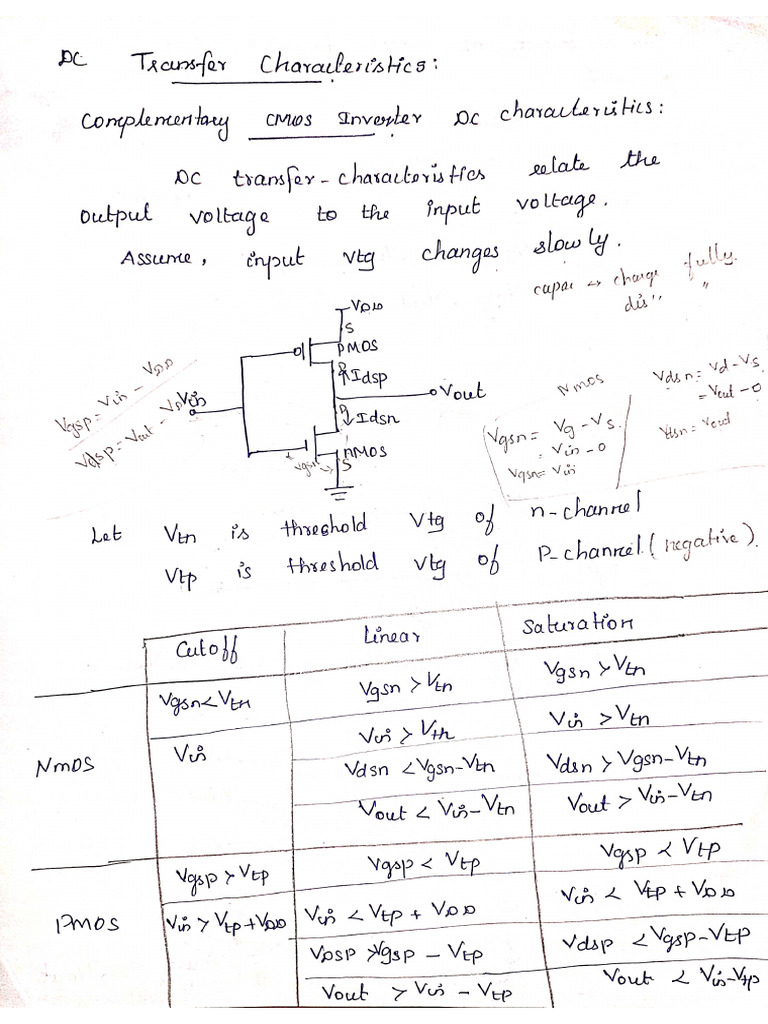 DC Transfer Characteristics:
Complementary CMOS Inverter DC characteristics:
DC transfer-characteristics relate the
output voltage to the input voltage.
Assume, input vtg changes slowly.
capac ↔ charge fully.
dis" "
VDD
S
PMOS
Idsp
Vout
Vin
Idsn
NMOS
Vgsn
S
Vgsp = Vin - VDD
Vdsp = Vout - VDD
NMOS
Vgsn = Vg - Vs.
= Vin - 0
Vgsn = Vin
Vdsn = Vd - Vs
= Vout - 0
Vdsn = Vout
Let Vtn is threshold Vtg of n-channel
Vtp is threshold vtg of P-channel (negative).
Cutoff Linear Saturation
Vgsn < Vtn Vgsn > Vtn Vgsn > Vtn
NMOS Vin Vin > Vth Vin > Vtn
Vdsn < Vgsn - Vtn Vdsn > Vgsn - Vtn
Vout < Vin - Vtn Vout > Vin - Vtn
Vgsp > Vtp Vgsp < Vtp Vgsp < Vtp
PMOS Vin > Vtp + VDD Vin < Vtp + VDD Vin < Vtp + VDD
VDSP > Vgsp - Vtp Vdsp < Vgsp - Vtp
Vout > Vin - Vtp Vout < Vin - Vtp